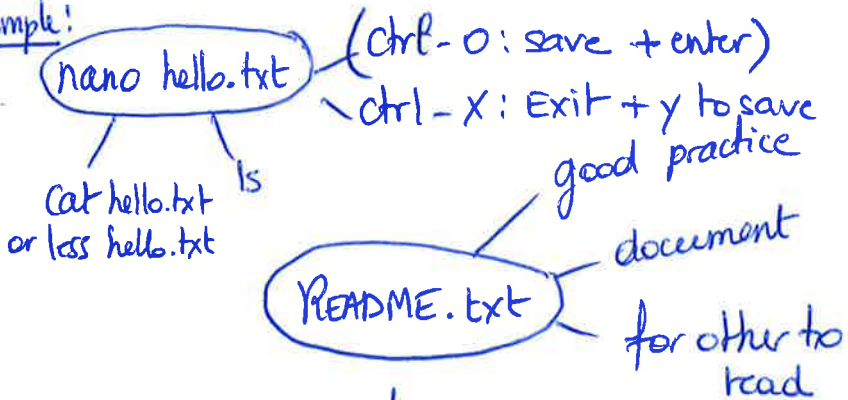 mple!
nano hello.txt
(ctrl - O : save + enter)
ctrl - X : Exit + y to save
cat hello.txt
or less hello.txt
ls
README.txt
good practice
document
for other to
read